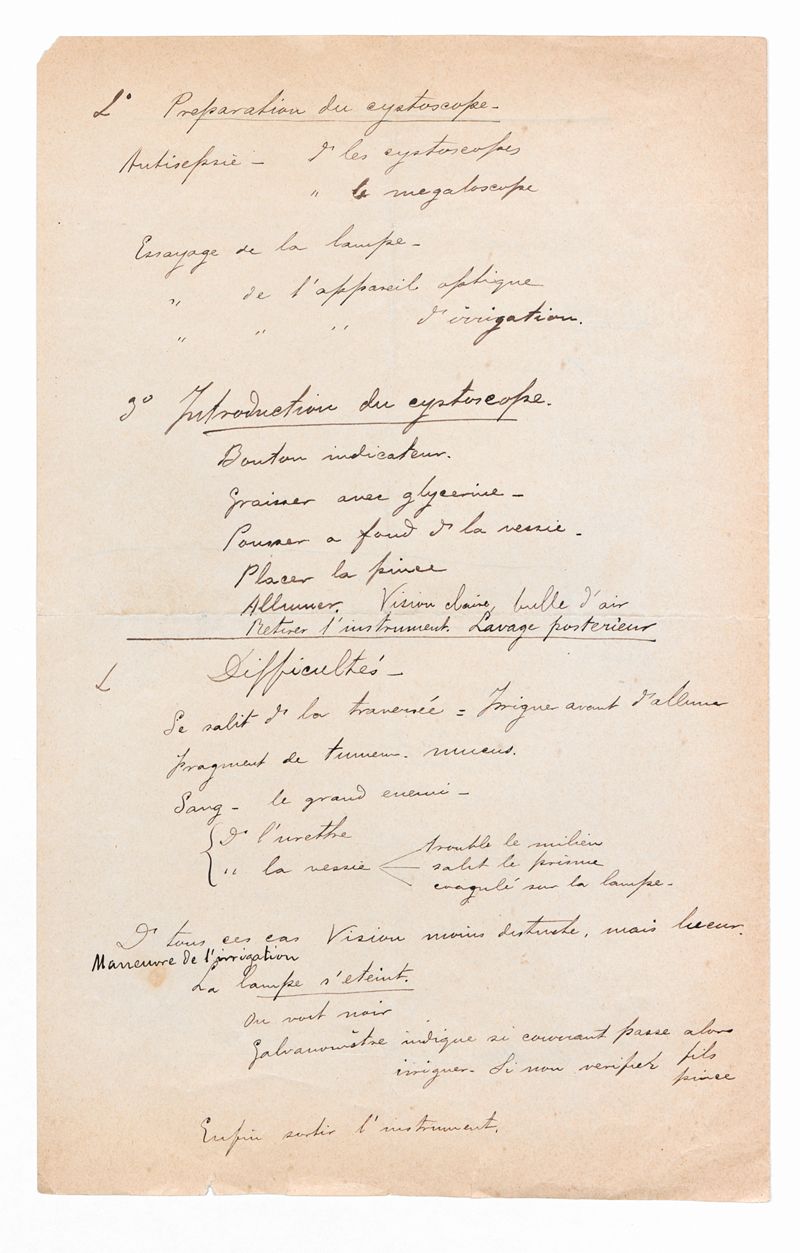 2° Preparation du cystoscope -
Antisepsie - ds les cystoscopes
" le megaloscope
Essayage de la lampe -
" de l'appareil optique
" " " d'irrigation.
3° Introduction du cystoscope.
Bouton indicateur.
Graisser avec glycerine -
Pousser a fond ds la vessie -
Placer la pince
Allumer. Vision claire, bulle d'air
Retirer l'instrument. Lavage posterieur
Difficultés -
Se salit ds la traversée = Irriguer avant d'allumer
Fragment de tumeur. mucus.
Sang - le grand enemi -
Ds l'urethre
" la vessie
trouble le milieu
salit le prisme
coagulé sur la lampe -
Ds tous ces cas Vision moins distincte, mais lueur.
Manœuvre de l'irrigation
La lampe s'eteint.
On voit noir
Galvanomètre indique si courant passe alors
irriguer - Si non verifier fils
pince
Enfin sortir l'instrument.